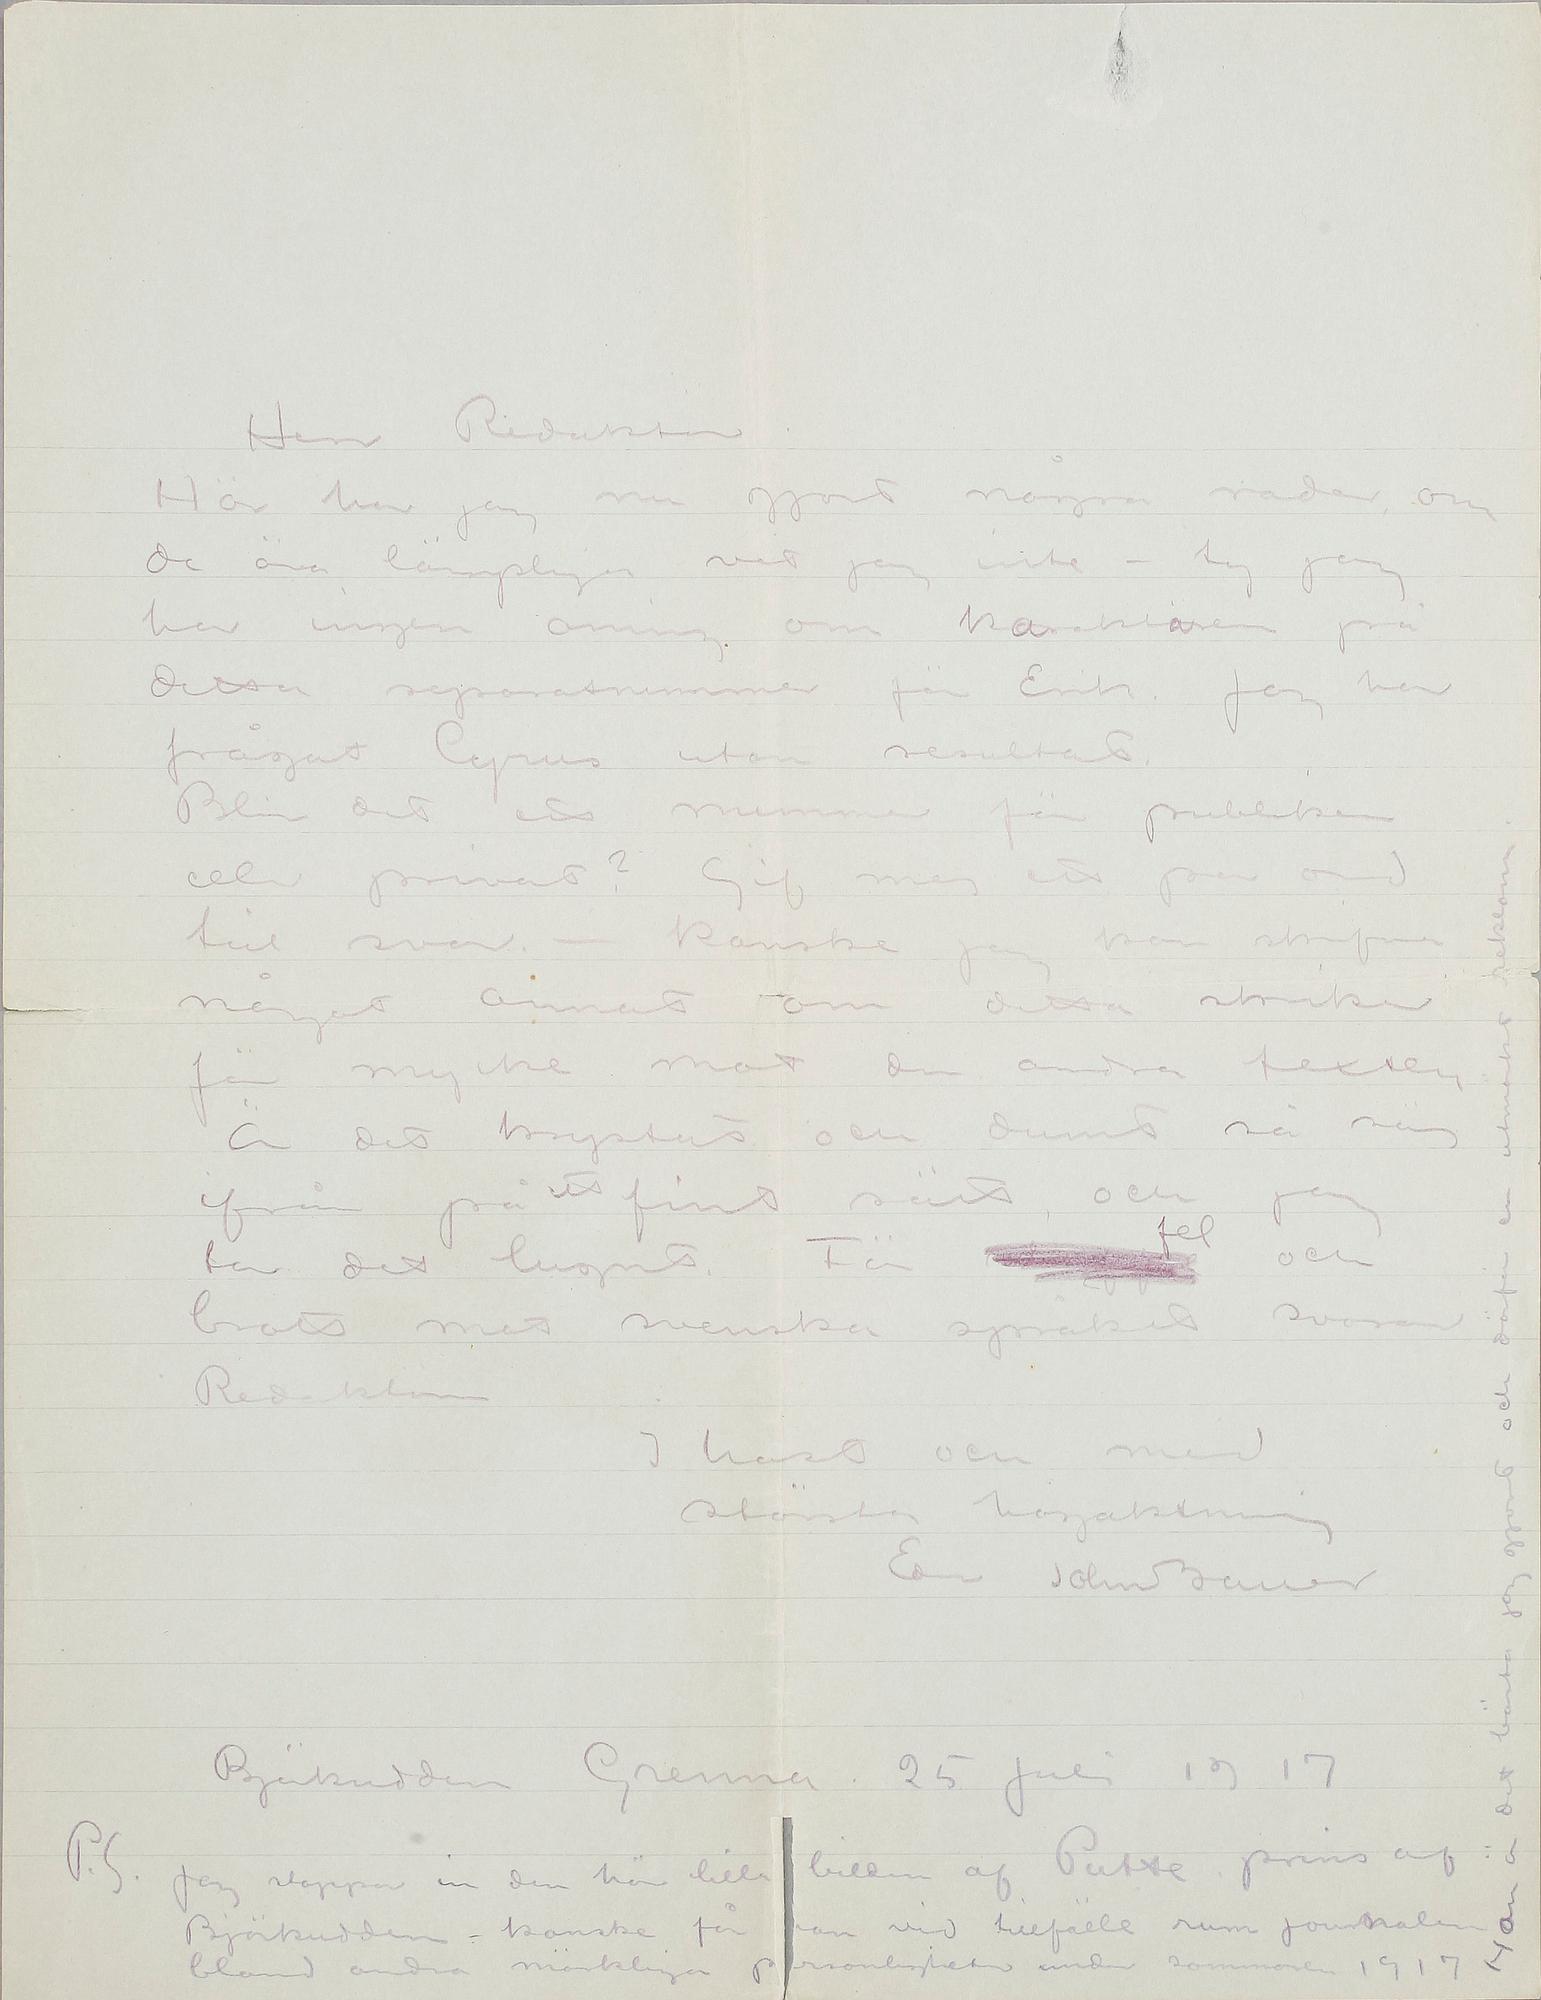 Herr Redaktör.
Här har jag nu gjort några rader, om
de äro lämpliga vet jag inte – ty jag
har ingen aning om karaktären på
detta separatnummer för Erik. Jag har
frågat Cyrus utan resultat.
Blir det ett nummer för publiken
eller privat? Gif mig ett par ord
till svar. – Kanske jag kan skrifva
något annat om detta strider
för mycke mot den andra texten
Är det krystat och dumt så säg
ifrån på ett fint sätt, och jag
tar det lugnt. För fel och
brott mot svenska språket svarar
Redaktören
I hast och med
största högaktning
Eder John Bauer
Björkudden Grenna. 25 juli 1917
P.S. Jag stoppar in den här lilla bilden af Putte prins af
Björkudden – kanske får han vid tillfälle rum journalen
bland andra märkliga personligheter under sommaren 1917
Han är det bästa jag gjort och därför en utmärkt reklam.